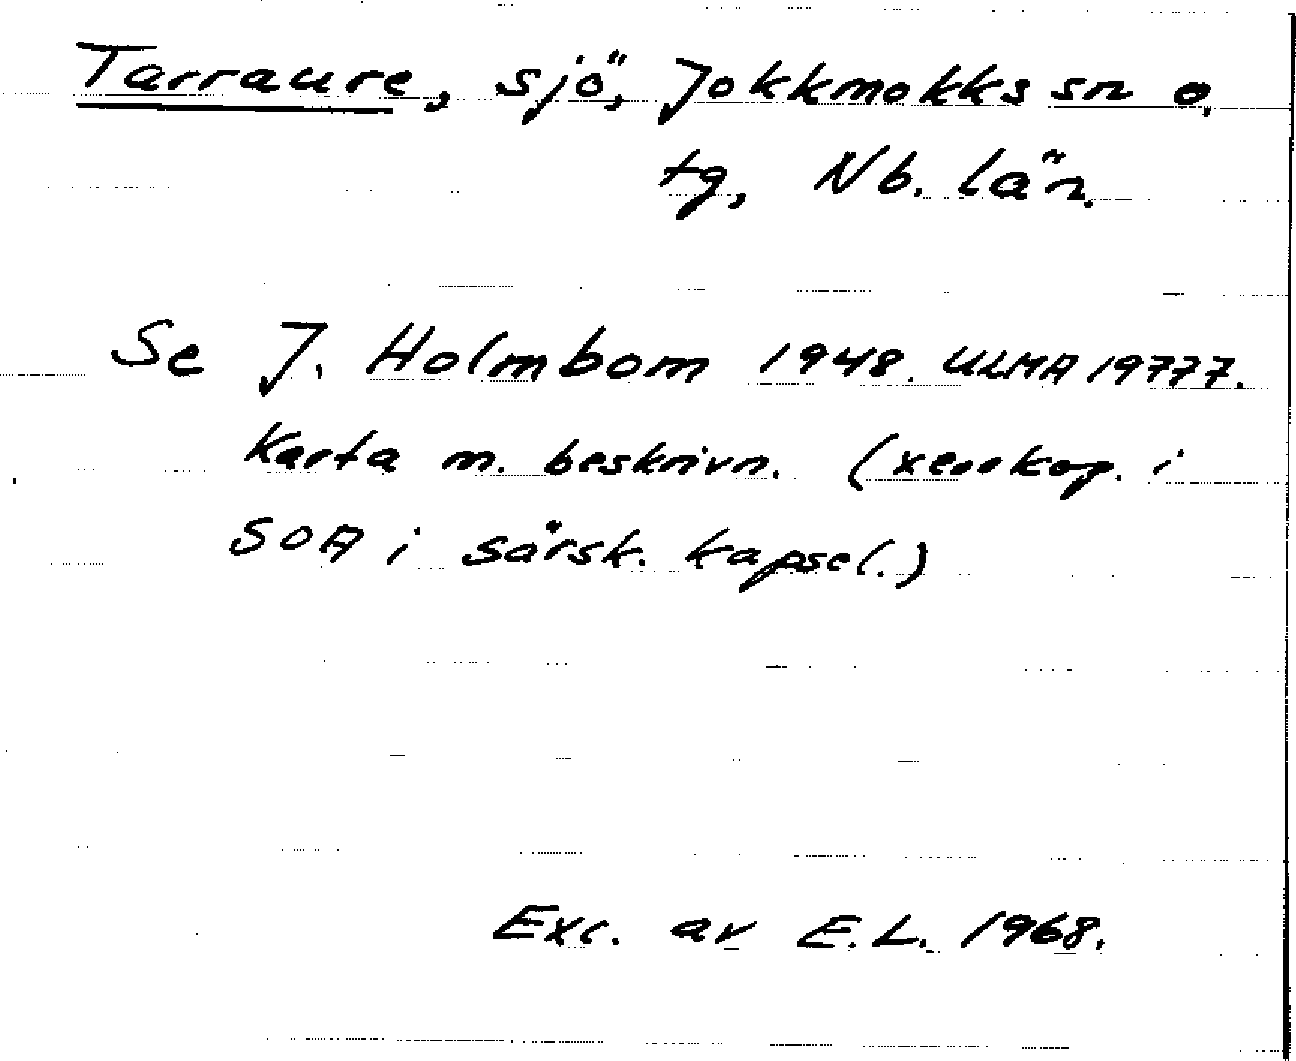 Tarraure, sjö, Jokkmokks sn o.
tg, Nb. län.
Se J. Holmbom 1948. ULMA 19777.
Karta m. beskrivn. (xerokop. i
SOA i särsk. kapsel.)
Exc. av E.L. 1968.